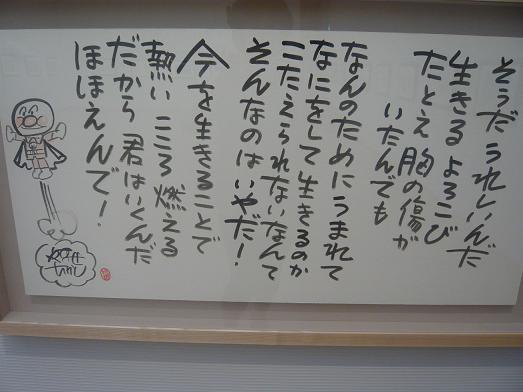 そうだ うれしいんだ
生きる よろこび
たとえ 胸の傷が
いたんでも
なんのために うまれて
なにをして 生きるのか
こたえられないなんて
そんなのは いやだ!
今を生きることで
熱い こころ 燃える
だから 君は いくんだ
ほほえんで!
やなせ
たかし